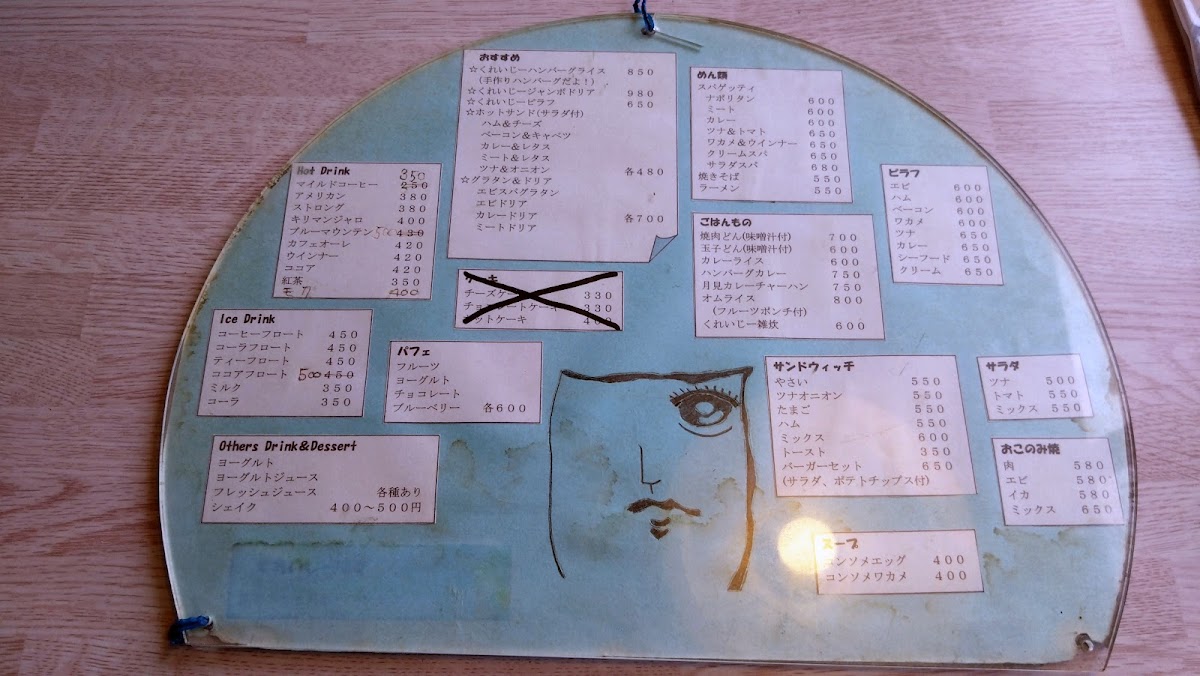 おすすめ
☆くれいじーハンバーグライス 850
(手作りハンバーグだよ!)
☆くれいじージャンボドリア 980
☆くれいじーピラフ 650
☆ホットサンド(サラダ付)
ハム&チーズ
ベーコン&キャベツ
カレー&レタス
ミート&レタス
ツナ&オニオン 各480
☆グラタン&ドリア
エビスパグラタン
エビドリア
カレードリア 各700
ミートドリア
めん類
スパゲッティ
ナポリタン 600
ミート 600
カレー 600
ツナ&トマト 650
ワカメ&ウインナー 650
クリームスパ 650
サラダスパ 680
焼きそば 550
ラーメン 550
Hot Drink 350
マイルドコーヒー 250
アメリカン 380
ストロング 380
キリマンジャロ 400
ブルーマウンテン 500 430
カフェオーレ 420
ウインナー 420
ココア 420
紅茶 350
モカ 400
ピラフ
エビ 600
ハム 600
ベーコン 600
ワカメ 600
ツナ 650
カレー 650
シーフード 650
クリーム 650
ごはんもの
焼肉どん(味噌汁付) 700
玉子どん(味噌汁付) 600
カレーライス 600
ハンバーグカレー 750
月見カレーチャーハン 750
オムライス 800
(フルーツポンチ付)
くれいじー雑炊 600
ケーキ
チーズケーキ 330
チョコレートケーキ 330
ホットケーキ 400
Ice Drink
コーヒーフロート 450
コーラフロート 450
ティーフロート 450
ココアフロート 500 450
ミルク 350
コーラ 350
パフェ
フルーツ
ヨーグルト
チョコレート
ブルーベリー 各600
サンドウィッチ
やさい 550
ツナオニオン 550
たまご 550
ハム 550
ミックス 600
トースト 350
バーガーセット 650
(サラダ、ポテトチップス付)
サラダ
ツナ 500
トマト 550
ミックス 550
Others Drink&Dessert
ヨーグルト
ヨーグルトジュース
フレッシュジュース 各種あり
シェイク 400〜500円
おこのみ焼
肉 580
エビ 580
イカ 580
ミックス 650
スープ
コンソメエッグ 400
コンソメワカメ 400